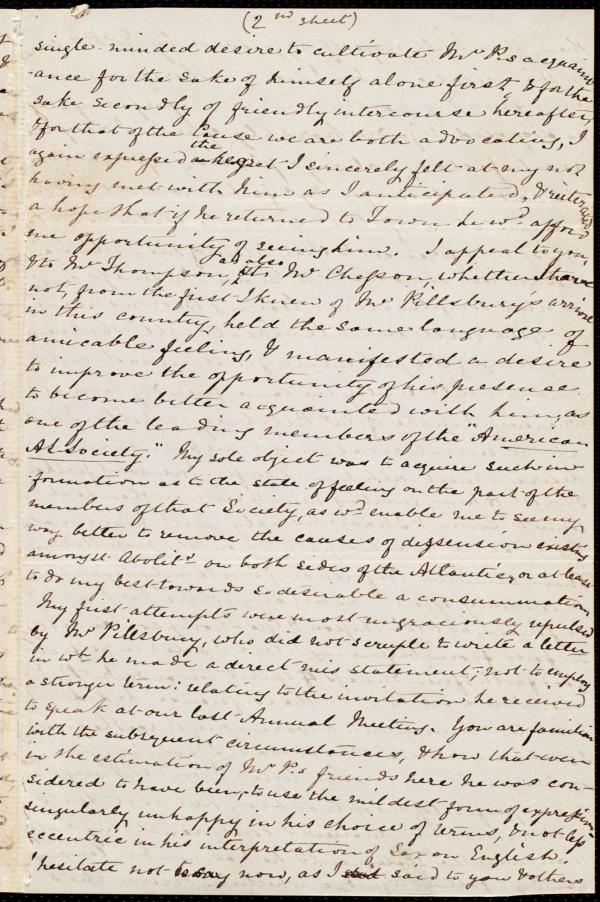 (2nd sheet)
single-minded desire to cultivate Mr P.s acquaint-
ance for the sake of himself alone first, & for the
sake secondly of friendly intercourse hereafter,
& for that of the Cause we are both advocating, I
again expressed the regret I sincerely felt at my not
having met with him as I anticipated, & reiterated
a hope that if he returned to Town he wd. afford
me opportunity of seeing him. I appeal to you,
& to Mr Thompson, as also to Mr Chesson, whether I have
not, from the first I knew of Mr Pillsbury's arrival
in this country, held the same language of
amicable feeling, & manifested a desire
to improve the opportunity of his presence
to become better acquainted with him, as
one of the leading members of the "American
AS Society." My sole object was to acquire such in-
formation as to the state of feeling on the part of the
members of that Society, as wd. enable me to see my
way better to remove the causes of dissension existing
amongst Abolits. on both sides of the Atlantic, or at least
to do my best towards so desirable a consummation.
My first attempts were most ungraciously repulsed
by Mr Pillsbury, who did not scruple to write a letter
in wh. he made a direct mis statement; not to employ
a stronger term: relating to the invitation he received
to speak at our last Annual Meeting. You are familiar
with the subsequent circumstances, & how that even
in the estimation of Mr P.s friends here he was con-
sidered to have been, to use the mildest form of expression,
singularly unhappy in his choice of terms, & not less
eccentric in his interpretation of Saxon English.
I hesitate not to say now, as I said to you & others